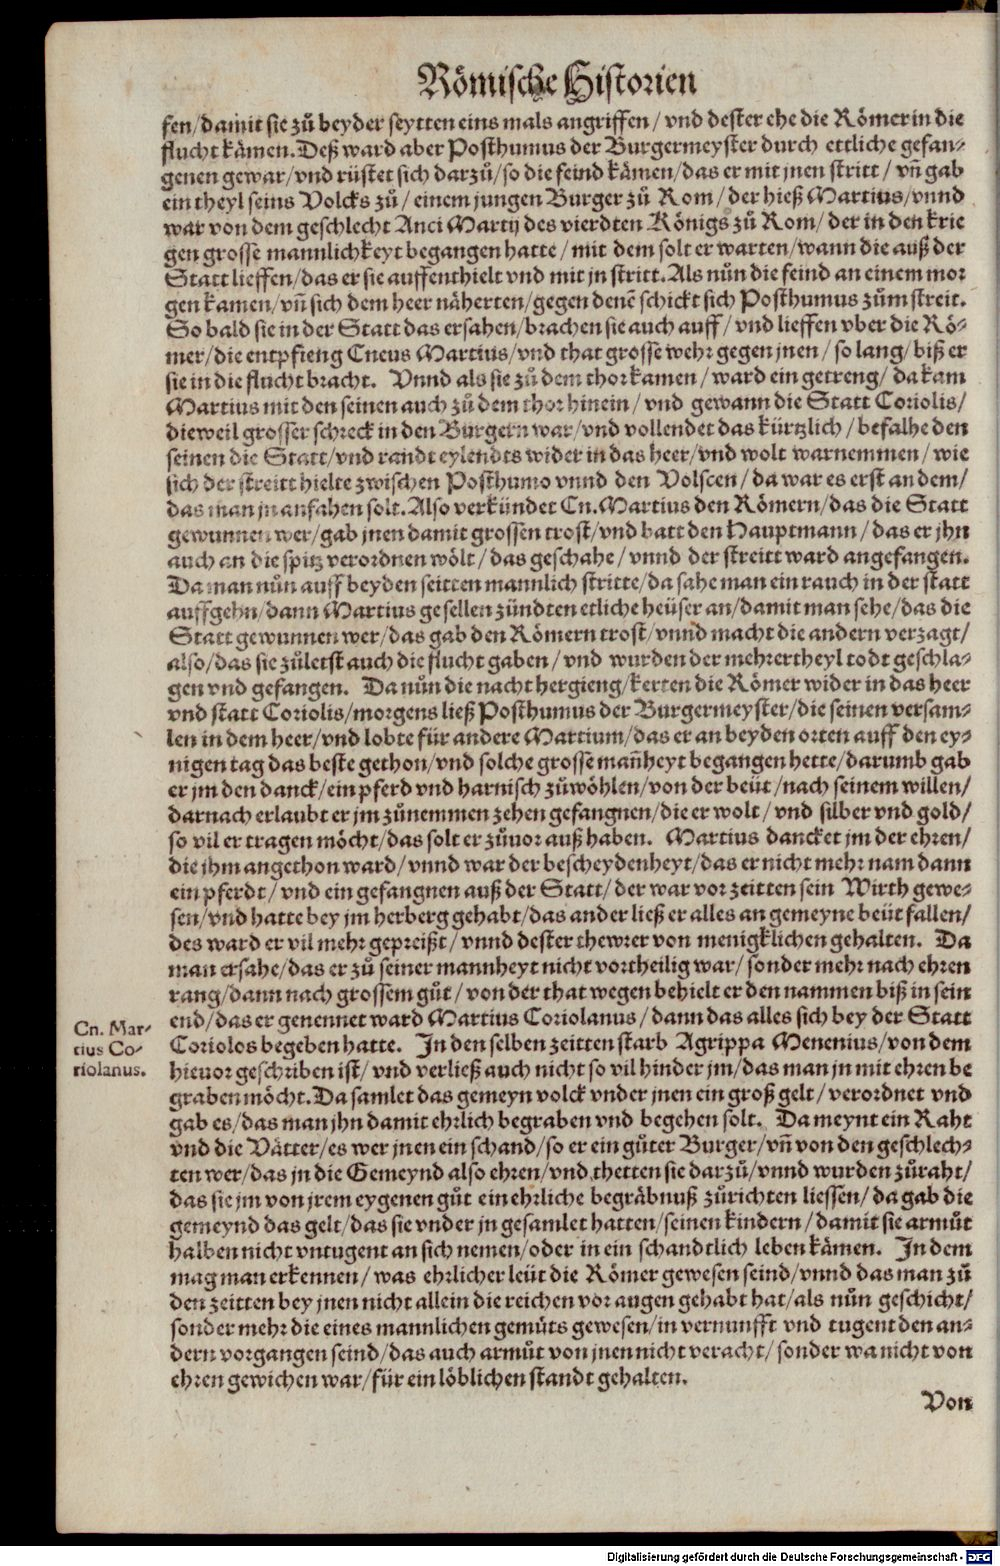 Römische Historien
fen/damit sie zů beyder seytten eins mals angriffen/ vnd dester ehe die Römer in die
flucht kämen. Deß ward aber Posthumus der Burgermeyster durch ettliche gefan-
genen gewar/vnd rüstet sich darzů/so die feind kämen/das er mit jnen stritt/ vñ gab
ein theyl seins Volcks zů/ einem jungen Burger zů Rom/ der hieß Martius/vnnd
war von dem geschlecht Anci Martij des vierdten Königs zů Rom/ der in den krie
gen grosse mannlichkeyt begangen hatte/ mit dem solt er warten/wann die auß der
Statt lieffen/das er sie auffenthielt vnd mit jn stritt. Als nůn die feind an einem mor
gen kamen/vñ sich dem heer näherten/gegen denẽ schickt sich Posthumus zům streit.
So bald sie in der Statt das ersahen/brachen sie auch auff/ vnd lieffen vber die Rö-
mer/die entpfieng Cneus Martius/vnd that grosse wehr gegen jnen/ so lang/biß er
sie in die flucht bracht. Vnnd als sie zů dem thor kamen/ ward ein getreng/ da kam
Martius mit den seinen auch zů dem thor hinein/ vnd gewann die Statt Coriolis/
dieweil grosser schreck in den Burgern war/vnd vollendet das kürtzlich/befalhe den
seinen die Statt/vnd randt eylendts wider in das heer/vnd wolt warnemmen/ wie
sich der streitt hielte zwischen Posthumo vnnd den Volscen/ da war es erst an dem/
das man jn anfahen solt. Also verkündet Cn. Martius den Römern/das die Statt
gewunnen wer/gab jnen damit grossen trost/vnd batt den Hauptmann/das er jhn
auch an die spitz verordnen wölt/das geschahe/ vnnd der streitt ward angefangen.
Da man nůn auff beyden seitten mannlich stritte/da sahe man ein rauch in der statt
auffgehn/dann Martius gesellen zündten etliche heüser an/damit man sehe/das die
Statt gewunnen wer/das gab den Römern trost/vnnd macht die andern verzagt/
also/das sie zůletst auch die flucht gaben/ vnd wurden der mehrertheyl todt geschla-
gen vnd gefangen. Da nůn die nacht hergieng/kerten die Römer wider in das heer
vnd statt Coriolis/morgens ließ Posthumus der Burgermeyster/die seinen versam-
len in dem heer/vnd lobte für andere Martium/das er an beyden orten auff den ey-
nigen tag das beste gethon/vnd solche grosse mañheyt begangen hette/darumb gab
er jm den danck/ein pferd vnd harnisch zůwöhlen/von der beüt/nach seinem willen/
darnach erlaubt er jm zůnemmen zehen gefangnen/die er wolt/ vnd silber vnd gold/
so vil er tragen möcht/das solt er zůuor auß haben. Martius dancket jm der ehren/
die jhm angethon ward/vnnd war der bescheydenheyt/das er nicht mehr nam dann
ein pferdt/ vnd ein gefangnen auß der Statt/der war vor zeitten sein Wirth gewe-
sen/vnd hatte bey jm herberg gehabt/das ander ließ er alles an gemeyne beüt fallen/
des ward er vil mehr gepreißt/ vnnd dester thewrer von menigklichen gehalten. Da
man ersahe/das er zů seiner mannheyt nicht vortheilig war/ sonder mehr nach ehren
rang/dann nach grossem gůt/ von der that wegen behielt er den nammen biß in sein
end/das er genennet ward Martius Coriolanus/ dann das alles sich bey der Statt
Coriolos begeben hatte. In den selben zeitten starb Agrippa Menenius/von dem
hieuor geschriben ist/ vnd verließ auch nicht so vil hinder jm/das man jn mit ehren be
graben möcht. Da samlet das gemeyn volck vnder jnen ein groß gelt/ verordnet vnd
gab es/das man jhn damit ehrlich begraben vnd begehen solt. Da meynt ein Raht
vnd die Vätter/es wer jnen ein schand/so er ein gůter Burger/vñ von den geschlech-
ten wer/das jn die Gemeynd also ehren/vnd thetten sie darzů/vnnd wurden zůraht/
das sie jm von jrem eygenen gůt ein ehrliche begräbnuß zůrichten liessen/da gab die
gemeynd das gelt/das sie vnder jn gesamlet hatten/seinen kindern/damit sie armůt
halben nicht vntugent an sich nemen/oder in ein schandtlich leben kämen. In dem
mag man erkennen/ was ehrlicher leüt die Römer gewesen seind/vnnd das man zů
den zeitten bey jnen nicht allein die reichen vor augen gehabt hat/als nůn geschicht/
sonder mehr die eines mannlichen gemůts gewesen/in vernunfft vnd tugent den an-
dern vorgangen seind/das auch armůt von jnen nicht veracht/ sonder wa nicht von
ehren gewichen war/für ein löblichen standt gehalten.
Von
Cn. Mar-
tius Co-
riolanus.
Digitalisierung gefördert durch die Deutsche Forschungsgemeinschaft - DFG